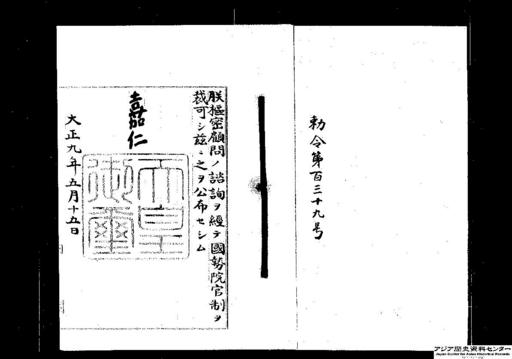 勅令第百三十九号
朕枢密顧問ノ諮詢ヲ経テ国勢院官制ヲ
裁可シ茲ニ之ヲ公布セシム
嘉仁
天皇
御璽
大正九年五月十五日
アジア歴史資料センター
Japan Center for Asian Historical Records